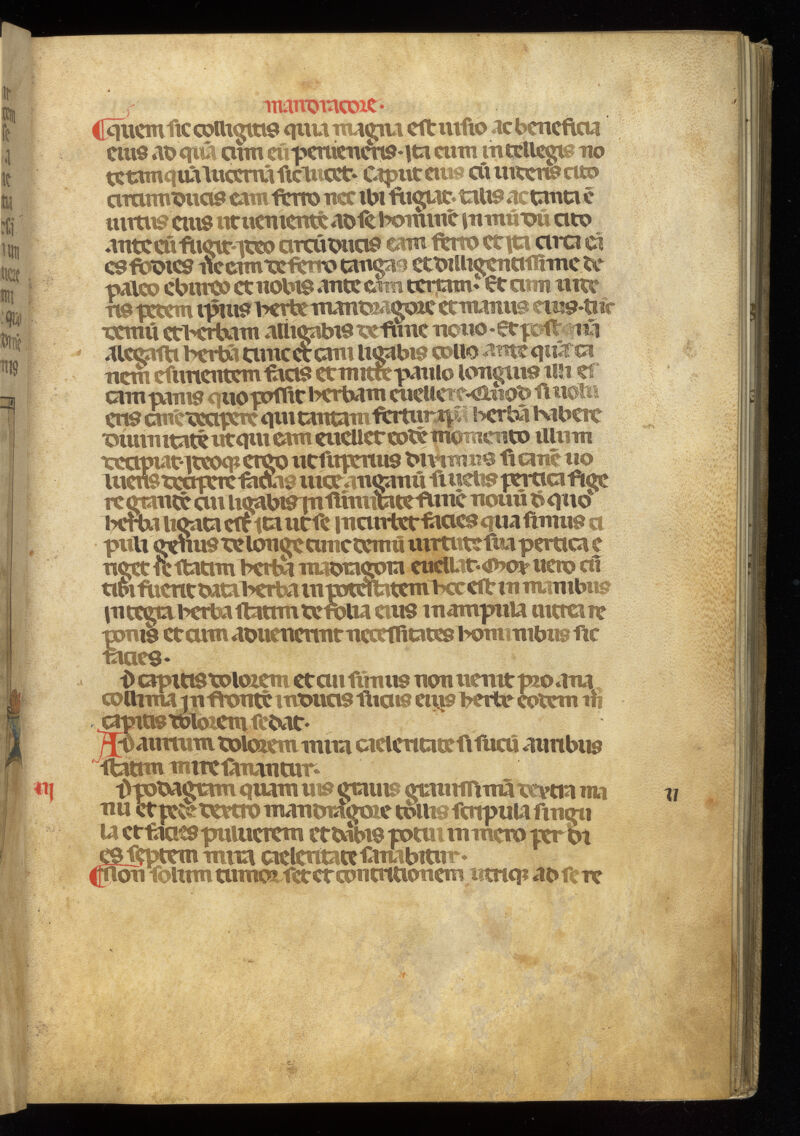 mandracore.
quem sic colligitis quia magna est uisio ac beneficia
eius ad quã cum eũ perueneris. ita eum intelleges no
cte tam quã lucernã sic lucet. Caput eius cũ uideris cito
circumducas eam ferro nec ibi fugiat. talis ac tanta ẽ
uirtus eius ut uenientẽ ad se hominẽ inmũdũ cito
ante eũ fugit. ideo circũducis eam ferro et ita circa eã
es fodies ne eam de ferro tangas et dilligentissime de
paleo eburneo et nobis ante eam terram. Et cum uide
ris pedem ipĩus herbe mandragore et manus eius. tũc
demũ et herbam alligabis de fune nouo. Et post quã
alegasti herbã tunc et cani ligabis collo ante quã ca
nem esurientem facis et mitte paulo longius illi es
cam panis quo possit herbam euellere. Quod si nolu
eris canẽ decipere qui tantam fertur ipã herbã habere
diuinitatẽ ut qui eam euellet eodẽ momento illum
decipiat. ideoqꝫ ergo ut superius diximus si canẽ uo
lueris decipere facias uice anganũ si uelis pertica fige
re grandẽ cui ligabis in summitate funẽ nouũ d quo
herba ligata est ita ut se incurbet facies qua simus ci
puli genus de longe tunc demũ uirtute sua pertica e
riget se statim herbã madragora euellat. Mox uero cũ
tibi fuerit data herba in potestatem hec est in manibus
integra herba statim de folia eius in ampula uitrea re
ponis et cum aduenerint necessitates hominibus sic
facies.
D capitis dolorem et cui simus non uenit pro ana
collima in frontẽ inducis sucus eius herbe eodem m̃
capitis dolorem sedat.
Ad aurium dolorem mira cieleritate si sucũ auribus
statim mire sanantur.
iij D podagram quam uis grauis grauissimã dextra ma
nu et pede dextro mandragore tollis scripula singu
la et facies puluerem et dabis potui in mero per di
es septem mira cieleritate sanabitur.
Non solum tumor set et contritionem utriqꝫ ad se re